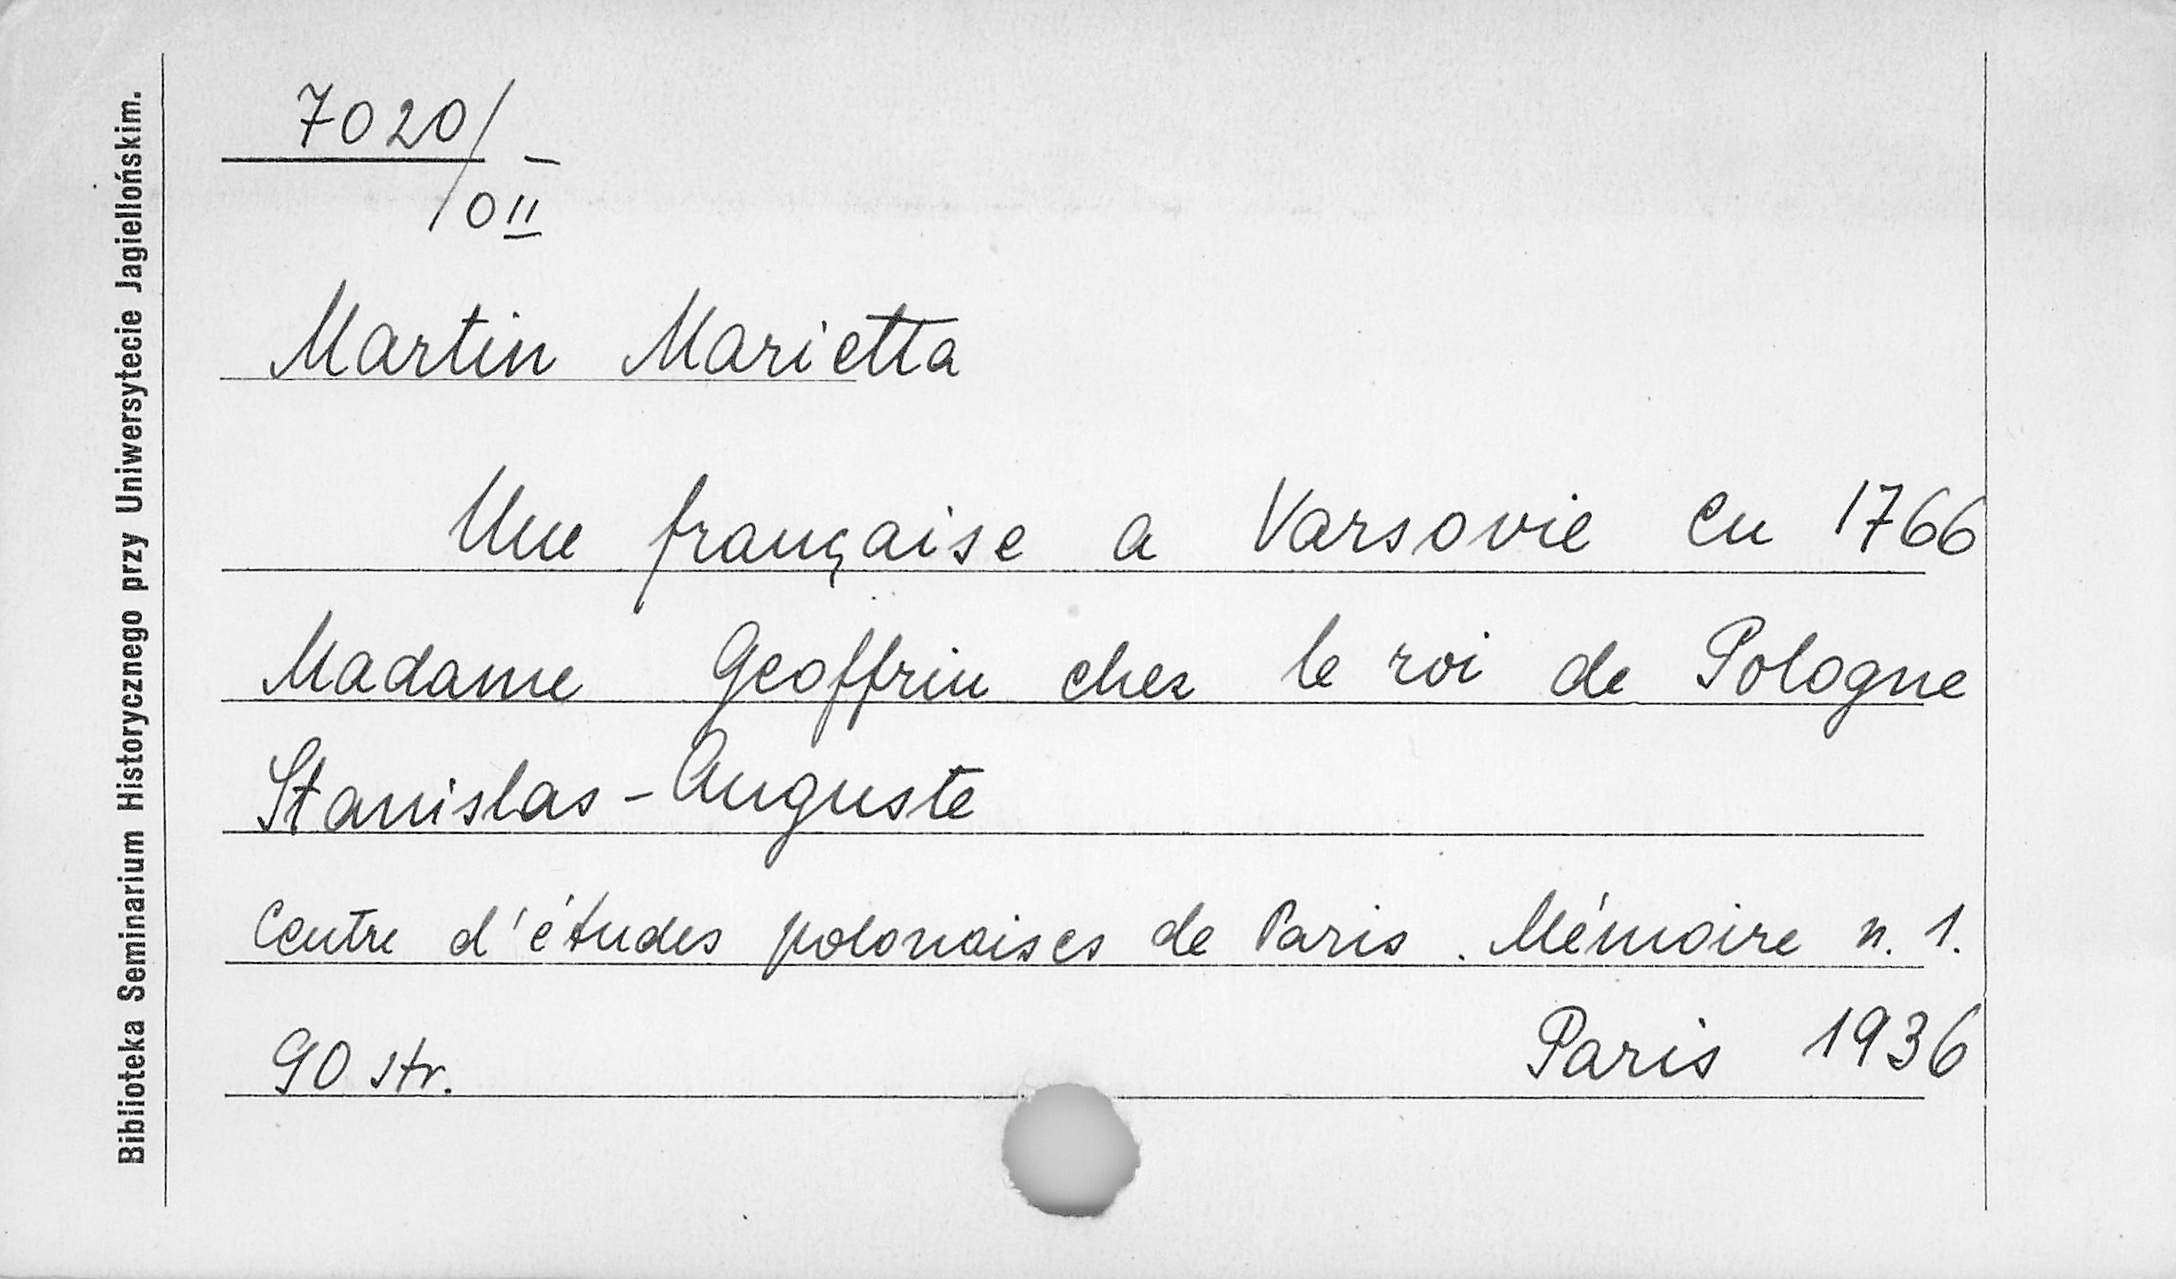 Biblioteka Seminarium Historycznego przy Uniwersytecie Jagiellońskim.
7020/
/0 II
Martin Marietta
Une française a Varsovie en 1766
Madame Geoffrin chez le roi de Pologne
Stanislas-Auguste
Centre d'études polonaises de Paris. Mémoire n. 1.
90 str. Paris 1936